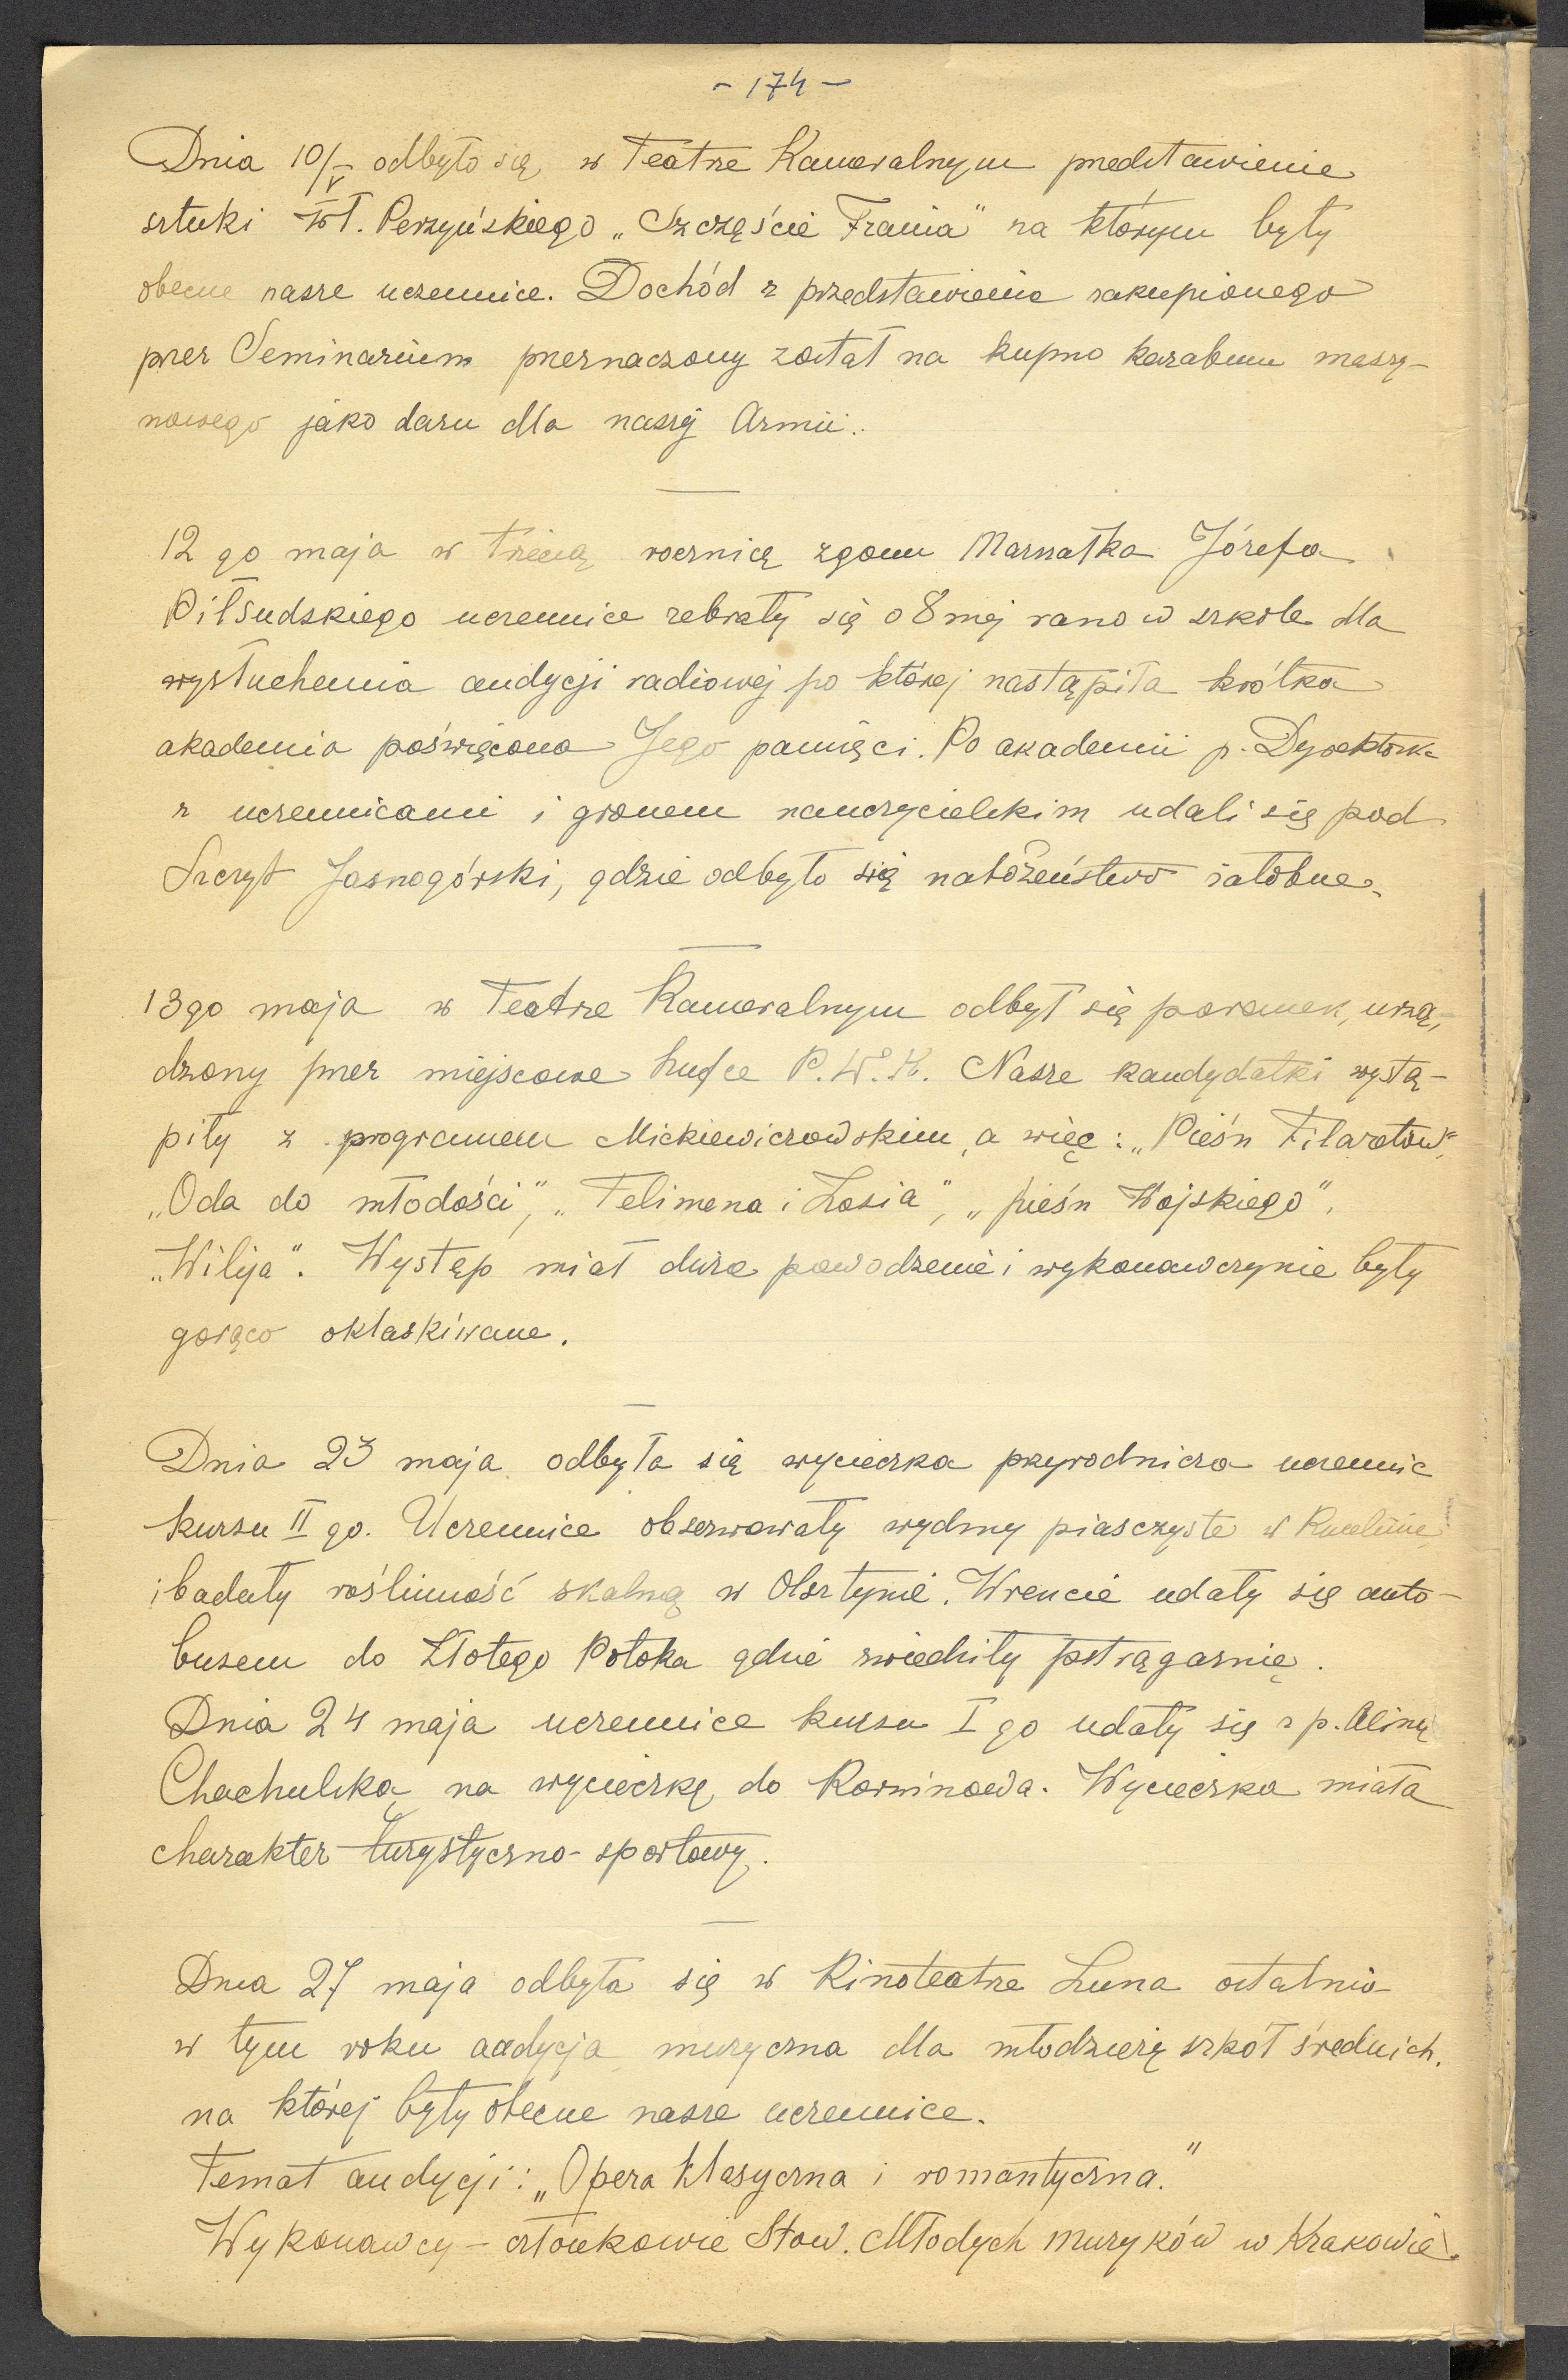 - 174 -
Dnia 10/V odbyło się w Teatrze Kameralnym przedstawienie
sztuki Wł. Perzyńskiego „Szczęście Frania" na którym były
obecne nasze uczennice. Dochód z przedstawienia zakupionego
przez Seminarium przeznaczony został na kupno karabinu maszy-
nowego jako daru dla naszej Armii.
12 go maja w trzecią rocznicę zgonu Marszałka Józefa
Piłsudskiego uczennice zebrały się o 8 mej rano w szkole dla
wysłuchania audycji radiowej po której nastąpiła krótka
akademia poświęcona Jego pamięci. Po akademii p. Dyrektorka
z uczennicami i gronem nauczycielskim udali się pod
Szczyt Jasnogórski, gdzie odbyło się nabożeństwo żałobne.
13go maja w Teatrze Kameralnym odbył się poranek, urzą-
dzony przez miejscowe hufce P.W.K. Nasze kandydatki wystą-
piły z programem Mickiewiczowskim, a więc: „Pieśń Filaretów",
„Oda do młodości", „Telimena i Zosia", „pieśń Wojskiego",
„Wilija". Występ miał duże powodzenie i wykonawczynie były
gorąco oklaskiwane.
Dnia 23 maja odbyła się wycieczka przyrodnicza uczennic
kursu II go. Uczennice obserwowały wydmy piaszczyste w Kucelinie
i badały roślinność skalną w Olsztynie. Wreszcie udały się auto-
busem do Złotego Potoka gdzie zwiedziły pstrągarnię.
Dnia 24 maja uczennice kursu I go udały się z p. Aliną
Chachulską na wycieczkę do Korwinowa. Wycieczka miała
charakter turystyczno-sportowy.
Dnia 27 maja odbyła się w Kinoteatrze Luna ostatnia
w tym roku audycja muzyczna dla młodzieży szkół średnich,
na której były obecne nasze uczennice.
Temat audycji: „Opera klasyczna i romantyczna."
Wykonawcy - członkowie Stow. Młodych muzyków w Krakowie.